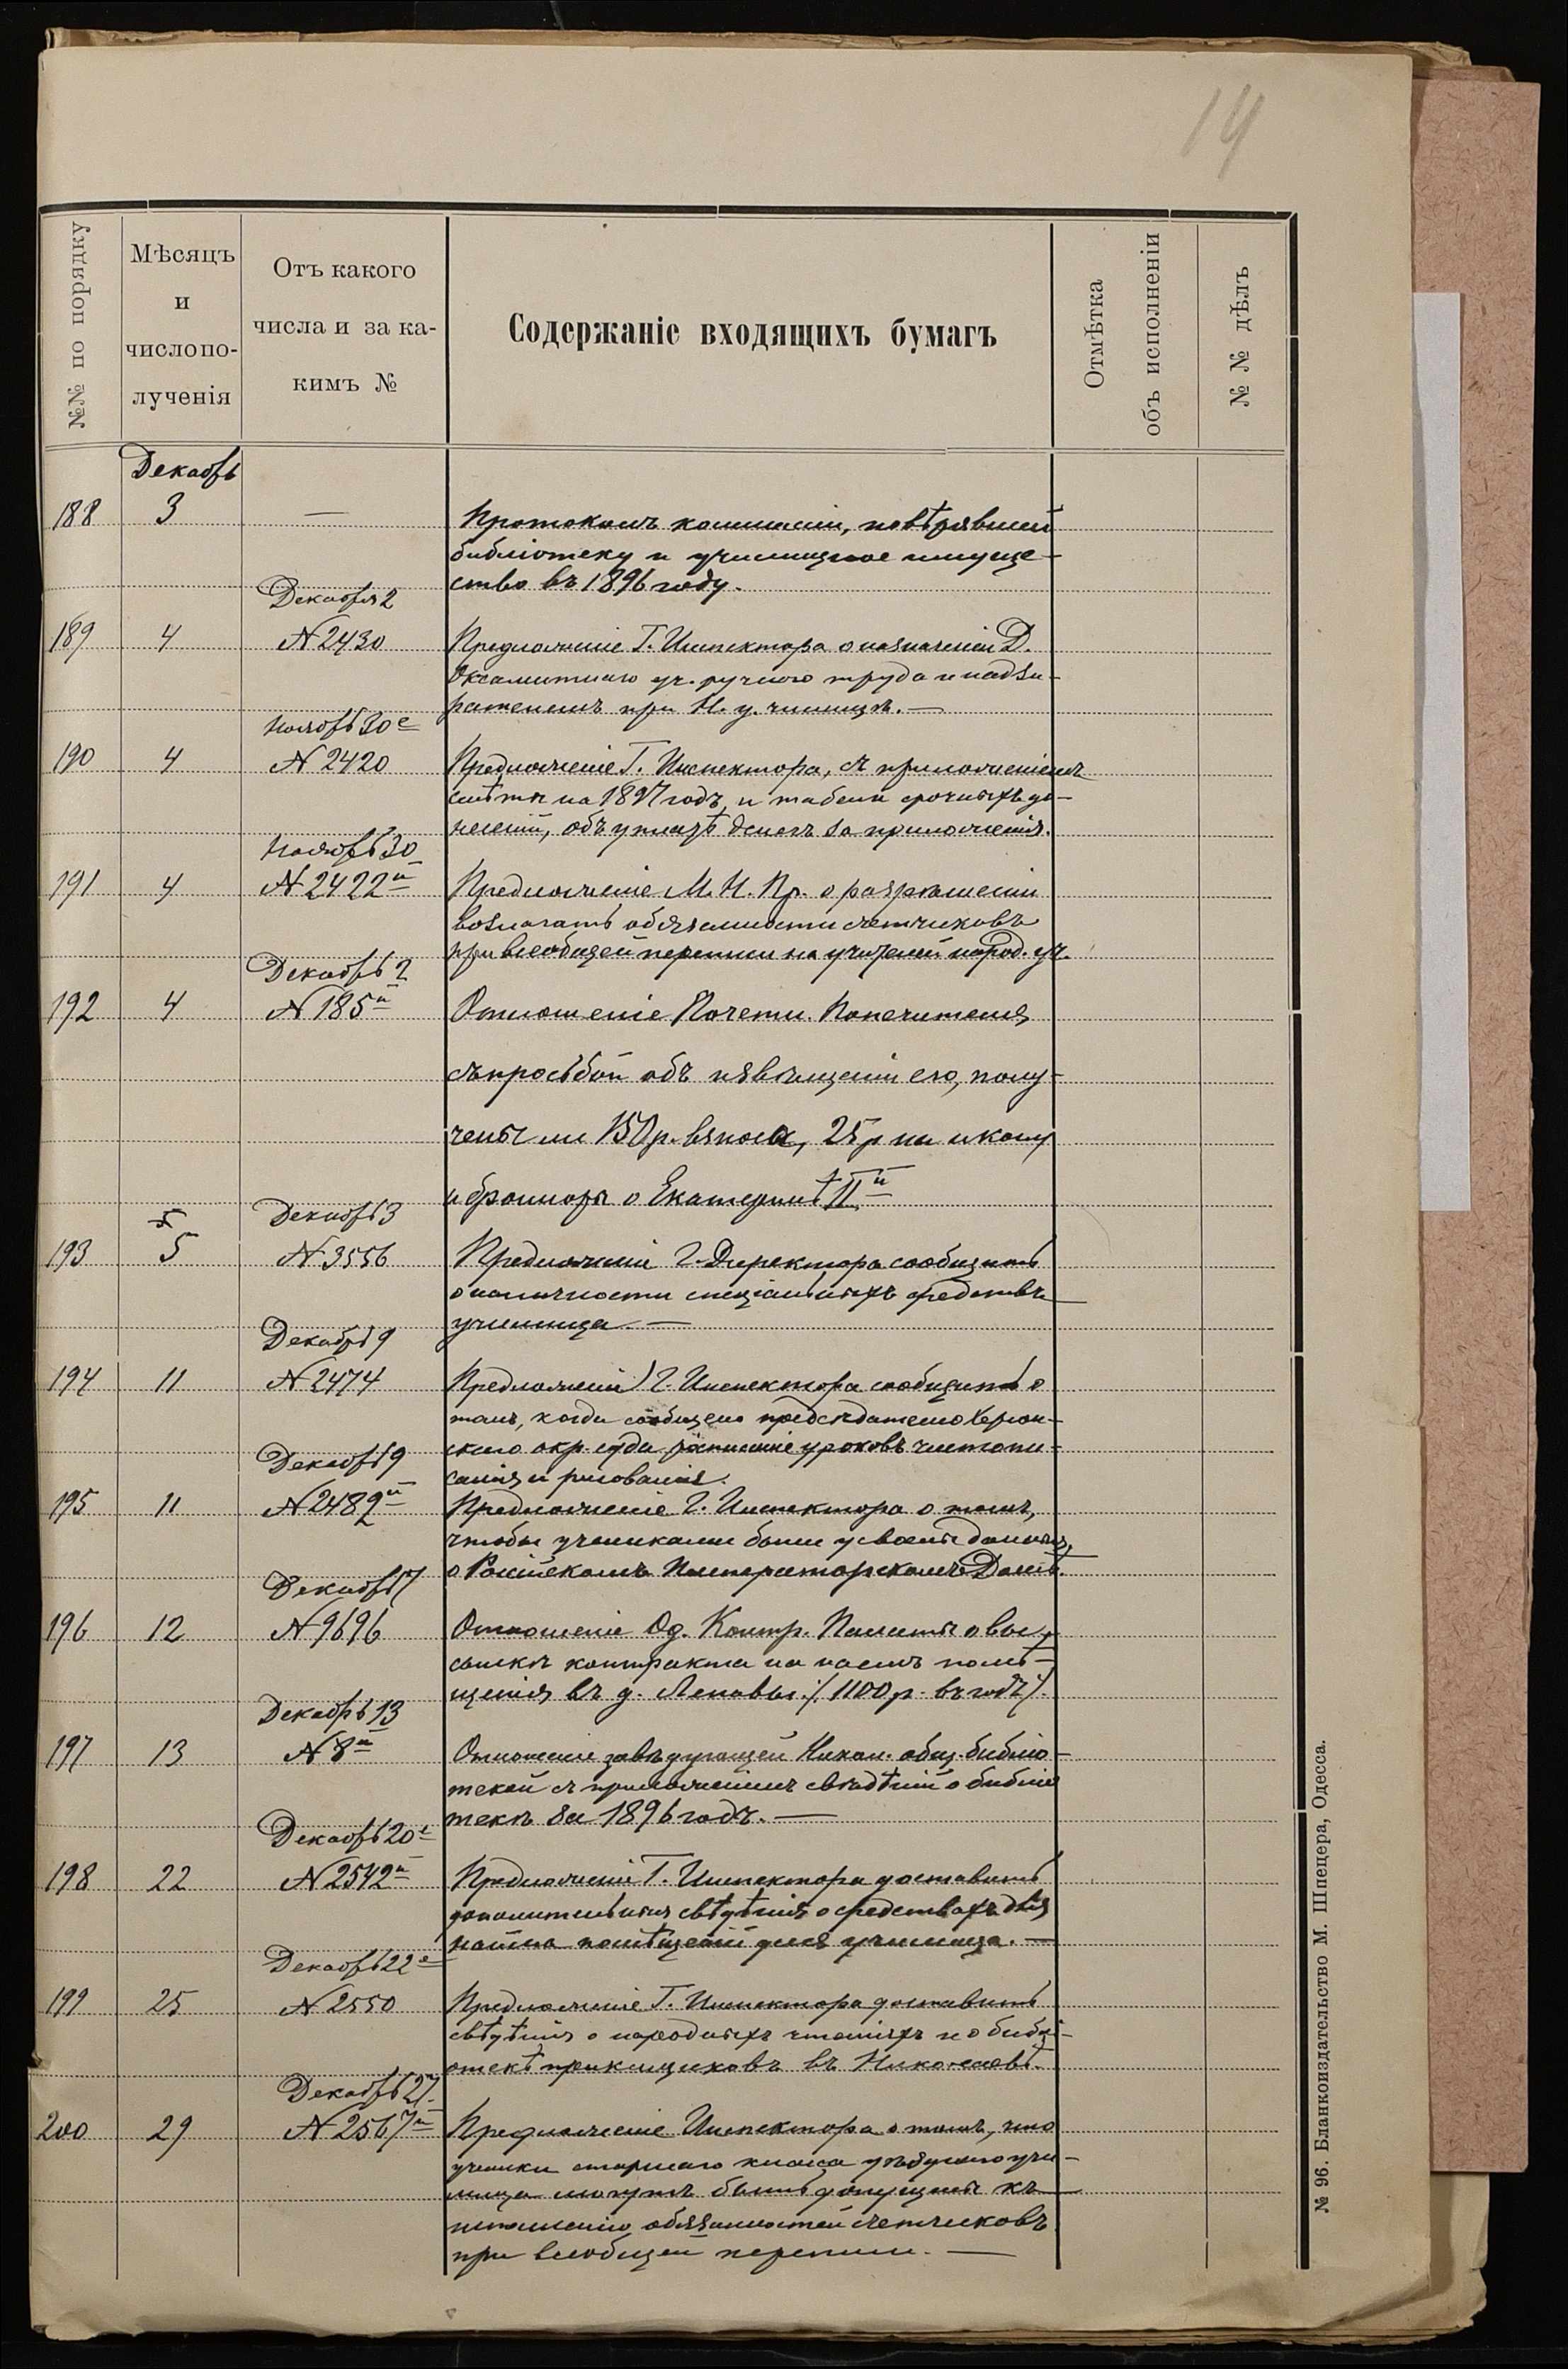 14
№№ по порядку
Мѣсяцъ
и
число по-
лученія
Отъ какого
числа и за ка-
кимъ №
Содержаніе входящихъ бумагъ
Отмѣтка
объ исполненіи
№ № дѣлъ
Декабрь
188 3 — Протоколъ комиссіи, повѣрявшей
библіотеку и училищное имуще-
ство въ 1896 году.
Декабря 2
189 4 N 2430 Предложеніе Г. Инспектора о назначеніи Д.
Оксамитнаго уч. ручного труда и надзи-
рателемъ при Н. у. училищѣ. —
Ноябрь 30е
190 4 N 2420 Предложеніе Г. Инспектора, съ приложеніемъ
смѣты на 1897 годъ, и табели срочныхъ до-
несеній, объ уплатѣ денегъ за приложенія.
Ноябрь 30
191 4 N 2422й Предложеніе М. Н. Пр. о разрѣшеніи
возлагать обязанности счетчиковъ
при всеобщей переписи на учителей народ. уч.
Декабрь 2
192 4 N 185й Отношеніе Почетн. Попечителя
съ просьбой объ извѣщеніи его, полу-
чены ли 150 р. взноса, 25 р на икону
и брошюры о Екатеринѣ IIй
5 Декабрь 3
193 5 N 3556 Предложеніе Г. Директора сообщить
о наличности спеціальныхъ средствъ
училища. —
Декабрь 9
194 11 N 2474 Предложеніе Г. Инспектора сообщить о
томъ, когда сообщено предсѣдателю Херсон-
скаго окр. суда росписаніе уроковъ чистопи-
санія и рисованія.
Декабрь 9
195 11 N 2489й Предложеніе Г. Инспектора о томъ,
чтобы учениками были усвоены данныя
о Россійскомъ Императорскомъ Домѣ.
Декабрь 7
196 12 N 9696 Отношеніе Од. Контр. Палаты о вы-
сылкѣ контракта на наемъ помѣ-
щенія въ д. Леповы /1100 р. въ годъ/.
Декабрь 13
197 13 N 8й Отношеніе завѣдующей Никол. общ. библіо-
текой съ приложеніемъ свѣдѣній о библіо
текѣ за 1896 годъ. —
Декабрь 20е
198 22 N 2542й Предложеніе Г. Инспектора доставить
дополнительныя свѣдѣнія о средствахъ для
найма помѣщеній для училища. —
Декабрь 22е
199 25 N 2550 Предложеніе Г. Инспектора доставить
свѣдѣнія о народныхъ чтеніяхъ и о библі-
отекѣ прикащиковъ въ Николаевѣ.
Декабрь 27
200 29 N 2567й Предложеніе Инспектора о томъ, что
ученики старшаго класса уѣзднаго учи-
лища могутъ быть допущены къ
исполненію обязанностей счетчиковъ
при всеобщей переписи. —
№ 96. Бланкоиздательство М. Шпецера, Одесса.